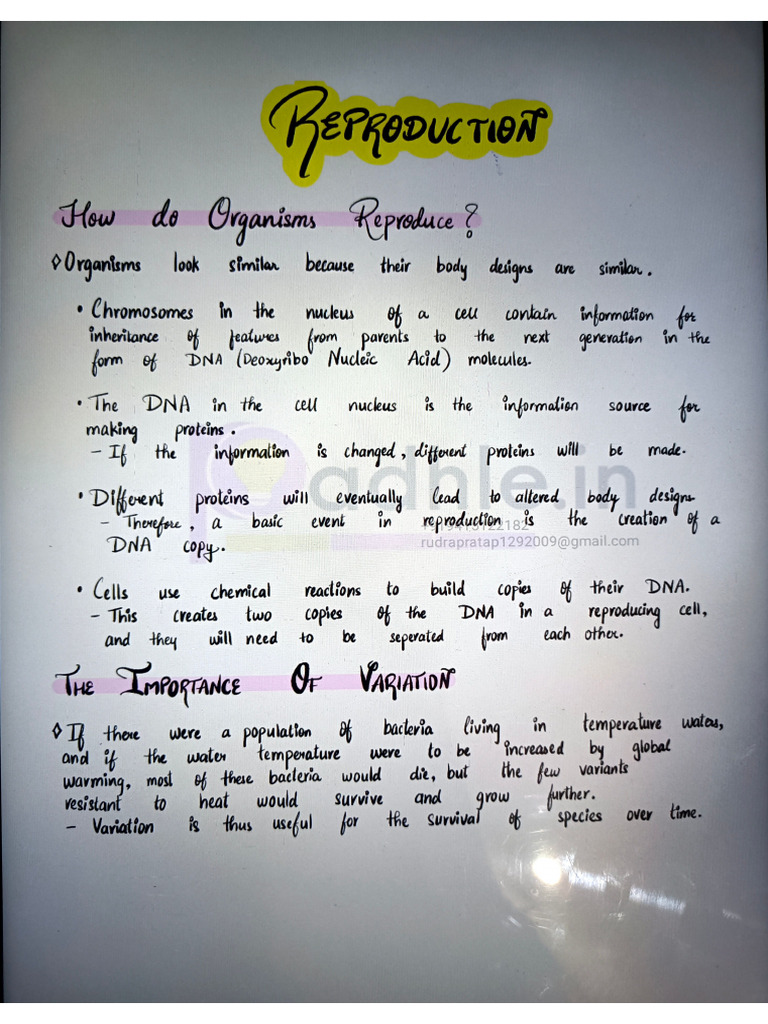 REPRODUCTION
How do Organisms Reproduce?
◊ Organisms look similar because their body designs are similar.
• Chromosomes in the nucleus of a cell contain information for
inheritance of features from parents to the next generation in the
form of DNA (Deoxyribo Nucleic Acid) molecules.
• The DNA in the cell nucleus is the information source for
making proteins.
– If the information is changed, different proteins will be made.
adhle.in
• Different proteins will eventually lead to altered body designs
– Therefore, a basic event in reproduction is the creation of a
DNA copy.
rudrapratap1292009@gmail.com
• Cells use chemical reactions to build copies of their DNA.
– This creates two copies of the DNA in a reproducing cell,
and they will need to be seperated from each other.
THE IMPORTANCE OF VARIATION
◊ If there were a population of bacteria living in temperature waters,
and if the water temperature were to be increased by global
warming, most of these bacteria would die, but the few variants
resistant to heat would survive and grow further.
– Variation is thus useful for the survival of species over time.